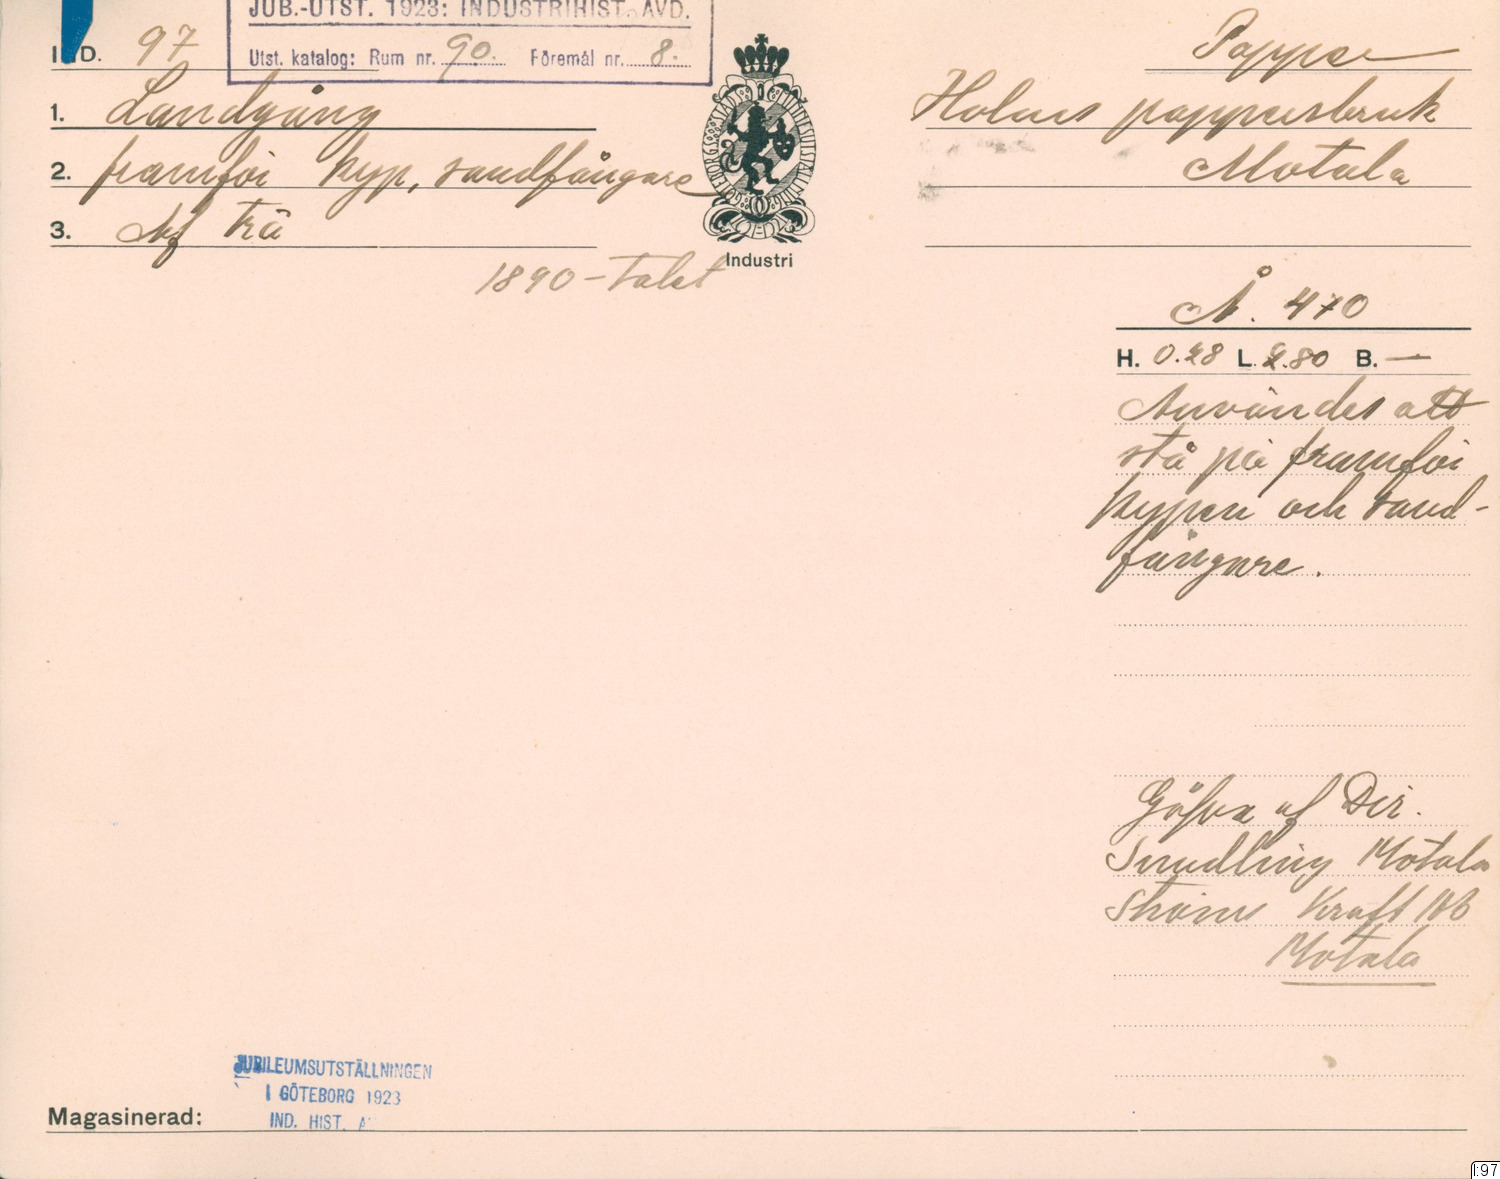 JUB.-UTST. 1923: INDUSTRIHIST. AVD.
Utst. katalog: Rum nr. 90. Föremål nr. 8.
IND. 97
1. Landgång
2. framför kyp, sandfångare
3. Af trä
1890-talet
GÖTEBORGS STADS
Industri
Papper
Holms pappersbruk
Motala
N. 470
H. 0.28 L. 2.80 B. —
Användes att
stå på framför
kypen och sand-
fångare.
Gåfva af Dir.
Smedling Motala
Ströms Kraft AB
Motala
JUBILEUMSUTSTÄLLNINGEN
I GÖTEBORG 1923
IND. HIST. A
Magasinerad:
I:97